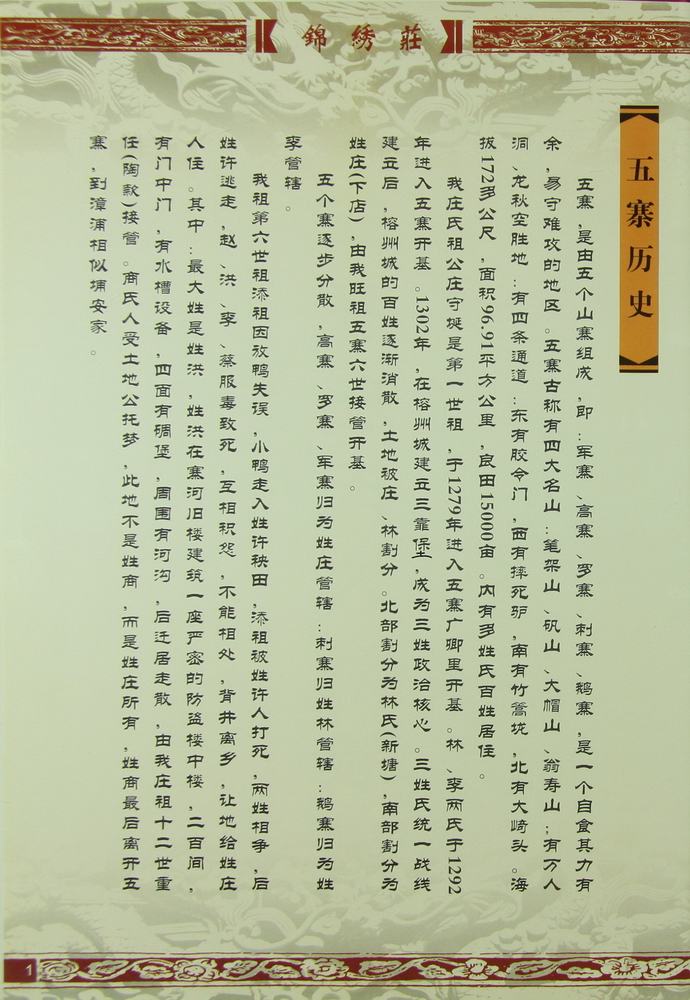 錦绣莊
五寨历史
五寨,是由五个山寨组成,即:军寨、高寨、罗寨、刺寨、鹅寨,是一个自食其力有
余,易守难攻的地区。五寨古称有四大名山:笔架山、矾山、大帽山、翁寿山;有万人
洞、龙秋空胜地:有四条通道:东有胶令门,西有摔死驴,南有竹篙垅,北有大崎头。海
拔172多公尺,面积96.91平方公里,良田15000亩。内有多姓氏百姓居住。
我庄氏祖公庄守埏是第一世祖,于1279年进入五寨广卿里开基。林、李两氏于1292
年进入五寨开基。1302年,在榕州城建立三靠堡,成为三姓政治核心。三姓氏统一战线
建立后,榕州城的百姓逐渐消散,土地被庄、林割分。北部割分为林氏(新塘),南部割分为
姓庄(下店),由我旺祖五寨六世接管开基。
五个寨逐步分散,高寨、罗寨、军寨归为姓庄管辖:刺寨归姓林管辖:鹅寨归为姓
李管辖。
我祖第六世祖添祖因放鸭失误,小鸭走入姓许秧田,添祖被姓许人打死,两姓相争,后
姓许逃走,赵、洪、李、蔡服毒致死,互相积怨,不能相处,背井离乡,让地给姓庄
人住。其中:最大姓是姓洪,姓洪在寨河旧楼建筑一座严密的防盗楼中楼,二百间,
有门中门,有水槽设备,四面有碉堡,周围有河沟,后迁居走散,由我庄祖十二世重
任(陶款)接管。商氏人受土地公托梦,此地不是姓商,而是姓庄所有,姓商最后离开五
寨,到漳浦相似埔安家。
1